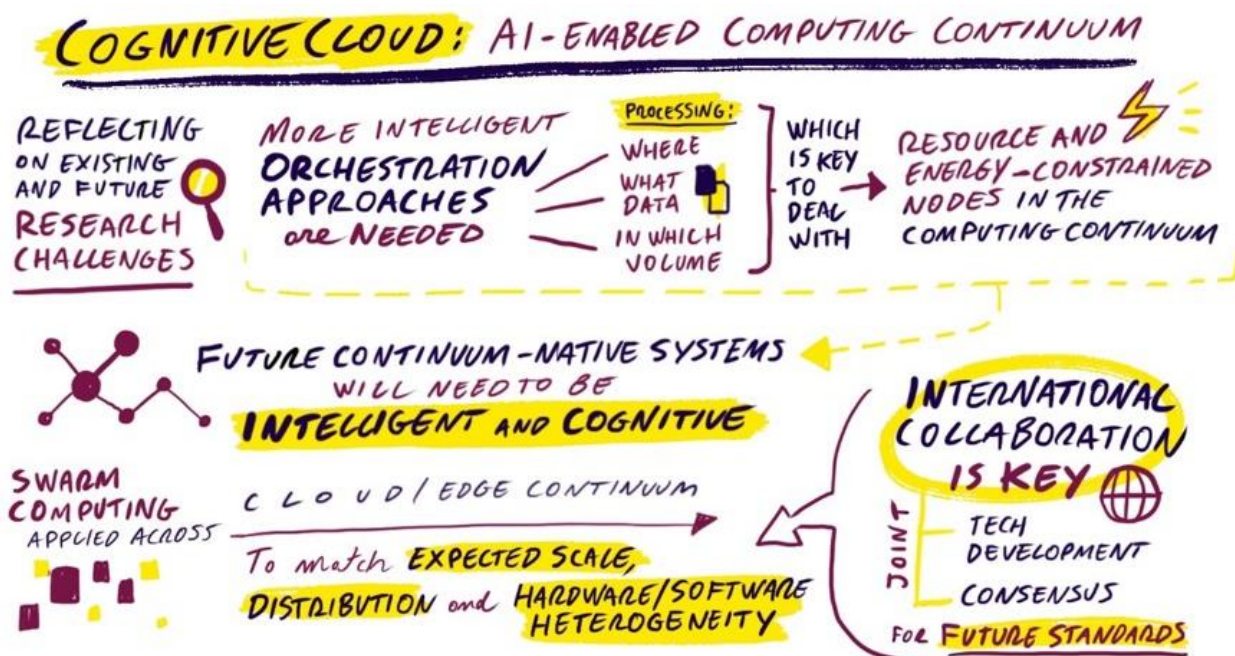 COGNITIVE CLOUD: AI-ENABLED COMPUTING CONTINUUM
REFLECTING
ON EXISTING
AND FUTURE
RESEARCH
CHALLENGES
MORE INTELLIGENT
ORCHESTRATION
APPROACHES
are NEEDED
PROCESSING:
WHERE
WHAT
DATA
IN WHICH
VOLUME
WHICH
IS KEY
TO
DEAL
WITH
RESOURCE AND
ENERGY-CONSTRAINED
NODES IN THE
COMPUTING CONTINUUM
FUTURE CONTINUUM-NATIVE SYSTEMS
WILL NEED TO BE
INTELLIGENT AND COGNITIVE
SWARM
COMPUTING
APPLIED ACROSS
CLOUD/EDGE CONTINUUM
To match EXPECTED SCALE,
DISTRIBUTION and HARDWARE/SOFTWARE
HETEROGENEITY
INTERNATIONAL
COLLABORATION
IS KEY
JOINT
TECH
DEVELOPMENT
CONSENSUS
FOR FUTURE STANDARDS